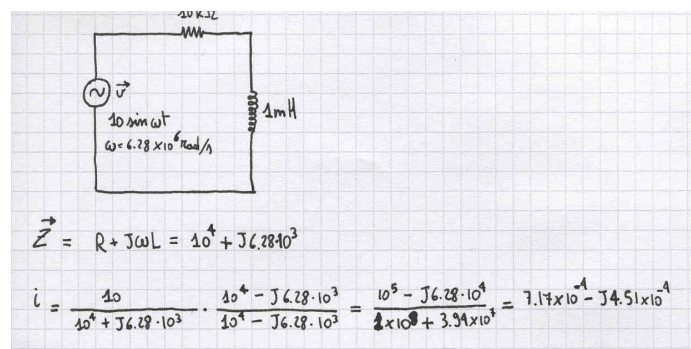 10kΩ
v⃗
1mH
10 sin ωt
ω=6.28×10⁶ rad/s
Z⃗ = R + JωL = 10⁴ + J6.28·10³
i = 10 / (10⁴ + J6.28·10³) · (10⁴ - J6.28·10³) / (10⁴ - J6.28·10³) = (10⁵ - J6.28·10⁴) / (1×10⁸ + 3.94×10⁷) = 7.17×10⁻⁴ - J4.51×10⁻⁴